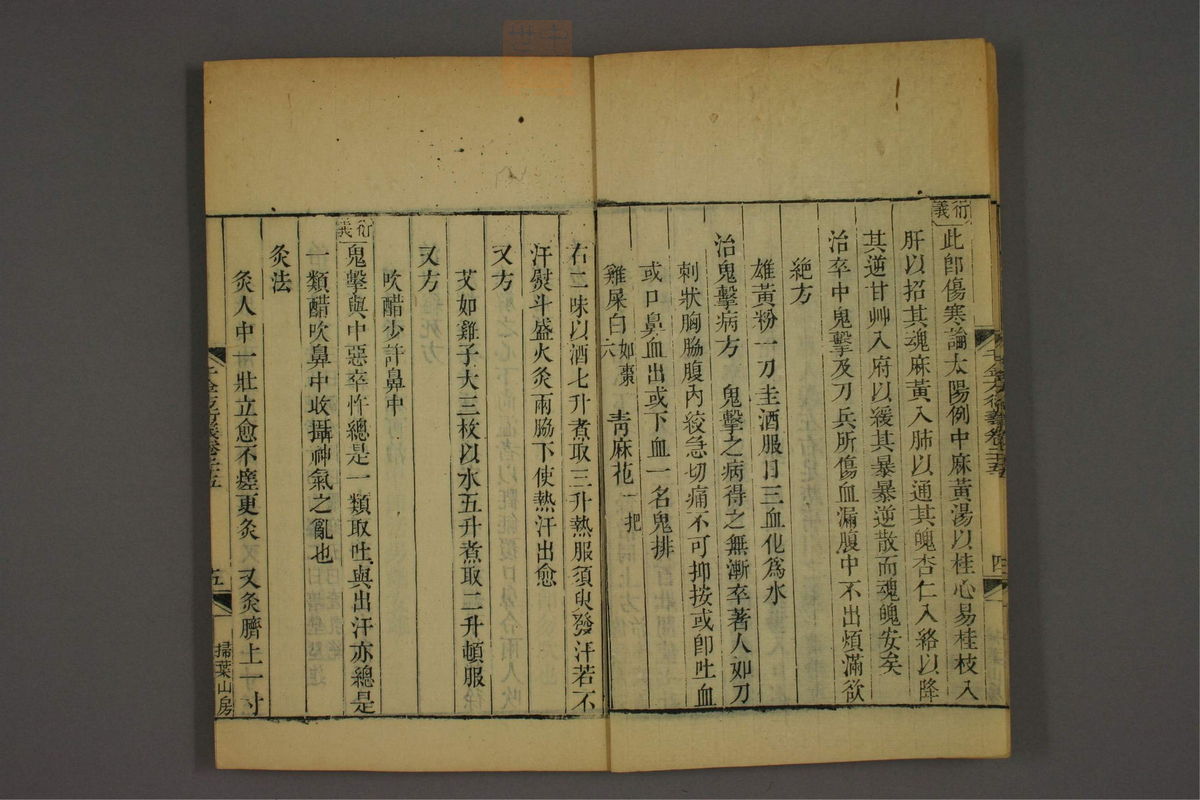 衍義
此卽傷寒論太陽例中麻黃湯以桂心易桂枝入
肝以招其魂麻黃入肺以通其魄杏仁入絡以降
其逆甘艸入府以緩其暴暴逆散而魂魄安矣
治卒中鬼擊及刀兵所傷血漏腹中不出煩滿欲
絶方
雄黃粉一刀圭酒服日三血化爲水
治鬼擊病方 鬼擊之病得之無漸卒著人如刀
刺狀胸脇腹內絞急切痛不可抑按或卽吐血
或口鼻血出或下血一名鬼排
雞屎白如棗大 靑麻花一把
千金方衍義卷二十五
四
右二味以酒七升煮取三升熱服須臾發汗若不
汗熨斗盛火灸兩脇下使熱汗出愈
又方
艾如雞子大三枚以水五升煮取二升頓服
又方
吹醋少許鼻中
衍義
鬼擊與中惡卒忤總是一類取吐與出汗亦總是
一類醋吹鼻中收攝神氣之亂也
灸法
灸人中一壯立愈不瘥更灸 又灸臍上一寸
千金方衍義卷二十五
五
掃葉山房